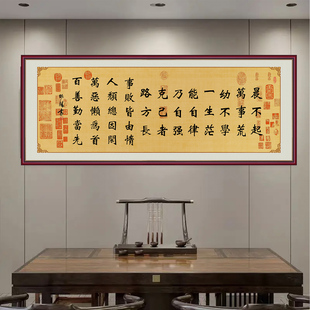 晨不起
萬事荒
幼不學
一生茫
能自律
乃自强
克己者
路方長
事敗皆由惰
人頹總因閑
萬惡懶爲首
百善勤當先